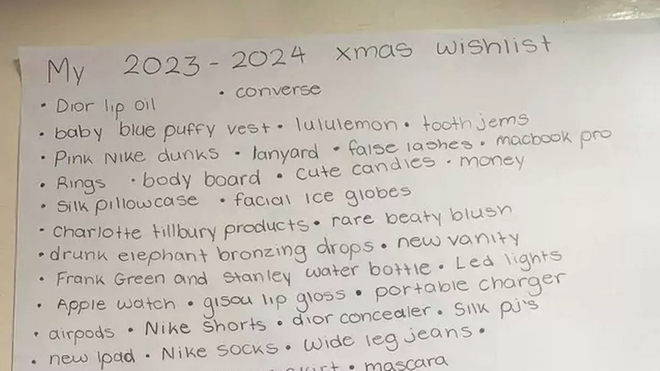 My 2023-2024 xmas wishlist
• Dior lip oil • converse
• baby blue puffy vest • lululemon • tooth jems
• Pink Nike dunks • lanyard • false lashes • macbook pro
• Rings • body board • cute candles • money
• Silk pillowcase • facial ice globes
• Charlotte tillbury products • rare beaty blush
• drunk elephant bronzing drops • new vanity
• Frank Green and Stanley water bottle • Led lights
• Apple watch • gisou lip gloss • portable charger
• airpods • Nike shorts • dior concealer • Silk pj's
• new Ipad • Nike socks • wide leg jeans •
• mascara